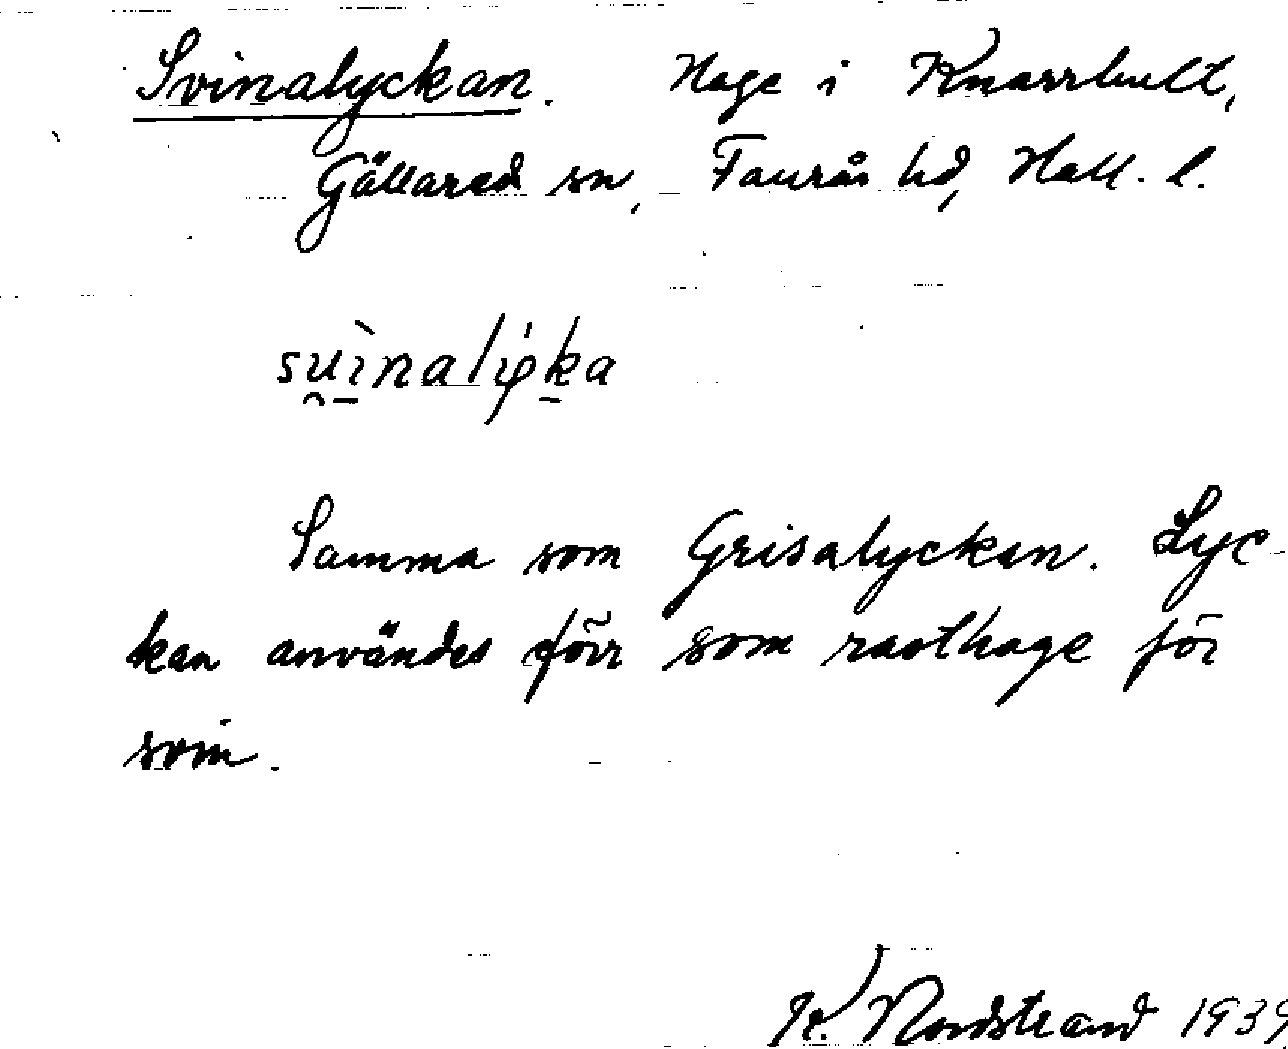 Svinalyckan. Hage i Knarrhult,
Gällared sn, Faurås hd, Hall. l.
su̯ìnalyka
Samma som Grisalyckan. Lyc-
kan användes förr som rasthage för
svin.
K. Nordstrand 1939